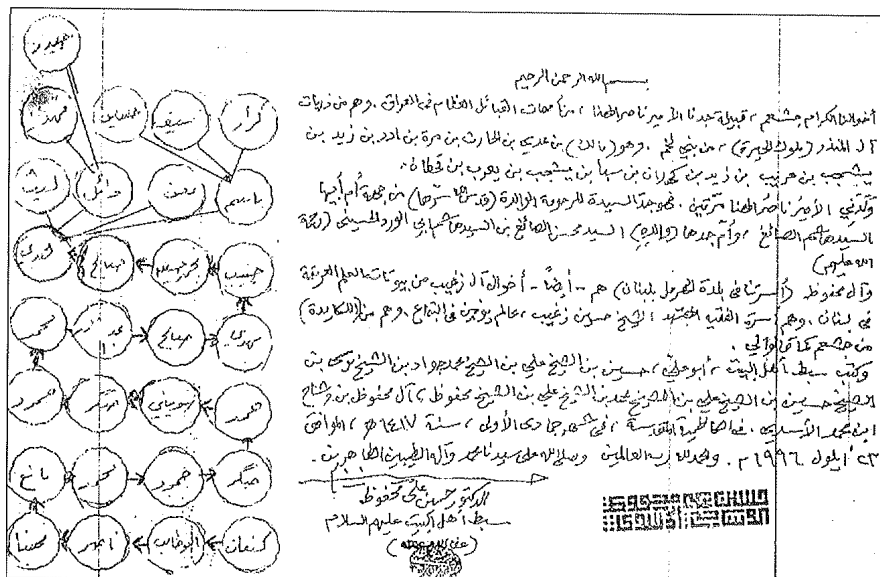 بسم الله الرحمن الرحيم
أخوالنا الكرام جشعم، قبيلة جدنا الأمير ناصر المهنا، من أمهات القبائل العظام في العراق. وهم من ذريات
آل المنذر (ملوك الحيرة)، من بني لخم. وهو (مالك) بن عدي بن الحارث بن مرة بن ادد بن زيد بن
يشجب بن عريب بن زيد بن كهلان بن سبأ بن يشجب بن يعرب بن قحطان.
الأمير ناصر المهنا مرتين. فهو جد السيدة المرحومة الوالدة (قدس الله سرها) من جهة أم أبيها
السيد هاشم الصائغ، وأم جدها (والدة) السيد محسن الصائغ بن السيد هاشم أبي الورد الحسيني (رحمة
الله عليهم)
وآل محفوظ (أسرتنا في بلدة الهرمل بلبنان) هم - أيضاً - أخوال آل زغيب من بيوتات العلم العريقة
في لبنان. وهم أسرة الفقيه المجتهد، الشيخ حسين زغيب، عالم في البقاع. وهم من
من جشعم
وكتب سبط أهل البيت، أبو علي، حسين بن الشيخ علي بن الشيخ محمد جواد بن الشيخ موسى بن
الشيخ حسين بن الشيخ علي بن الشيخ محمد بن الشيخ علي بن الشيخ محفوظ، آل محفوظ بن وشاح
ابن محمد الأسدي. في الكاظمية المقدسة، في شهر جمادى الأولى، سنة ١٤١٧ هـ، الموافق
٢٣ أيلول ١٩٩٦ م. والحمد لله رب العالمين وصلى الله على سيدنا محمد وآله الطيبين الطاهرين.
الدكتور حسين علي محفوظ
سبط أهل البيت عليهم السلام
كرار سيف حسين
فهد
ليث وائل باسم
حبيب صالح
مهدي صالح محمد
حمد حمود
صگر حمود محمد مانع
كنعان ابو طالب ناصر مهنا